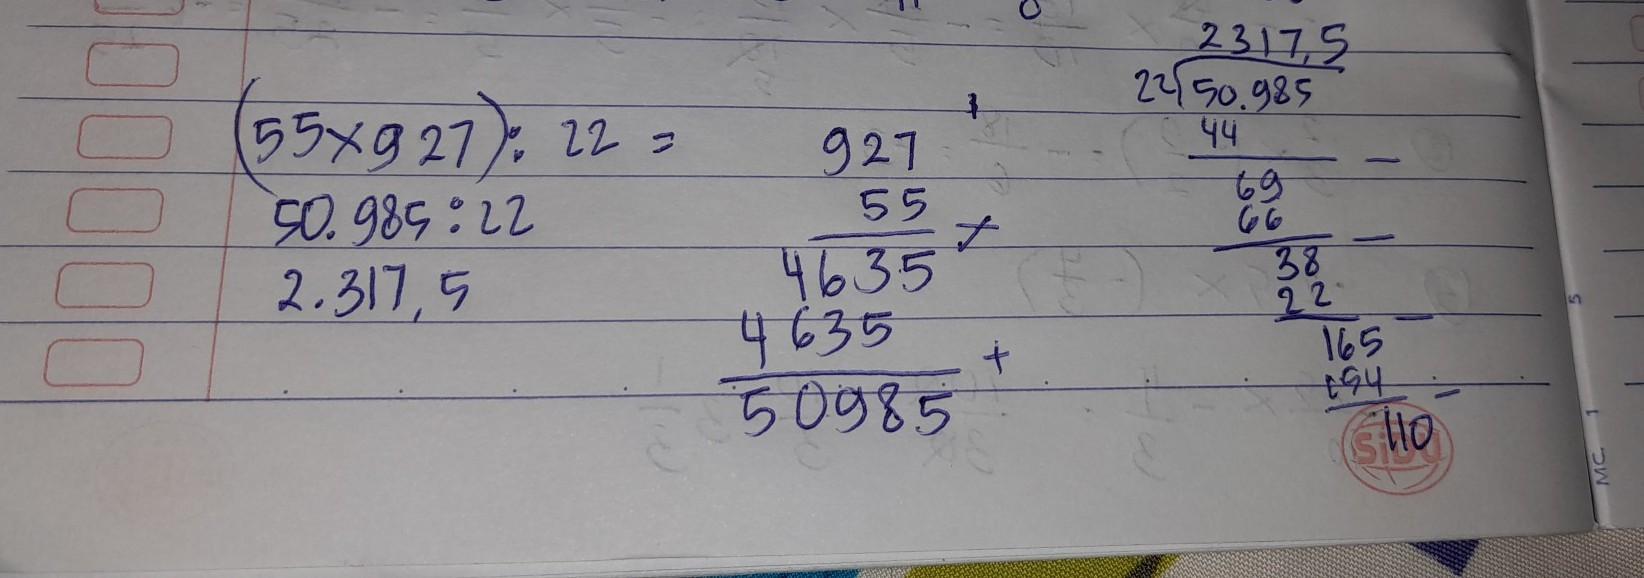 (55×927): 22 =
50.985:22
2.317,5
1
927
55 ×
4635
4635 +
50985
2317,5
22√50.985
44 -
69
66 -
38
22 -
165
154 -
110
SiDU
MC. 1 5